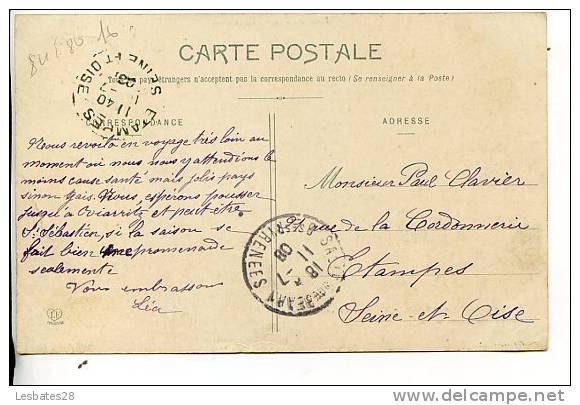 84 580 16
CARTE POSTALE
Tous les pays étrangers n'acceptent pas la correspondance au recto (Se renseigner à la Poste)
CORRESPONDANCE
ADRESSE
ETAMPES
SEINE ET OISE
11 40
Nous revoilà en voyage très loin au
moment où nous nous y attendions le
moins cause santé mais jolis pays
sinon gais. Nous, espérons pousser
jusqu'à Biarritz et peut être
St Sébastien, si la saison se
fait bien promenade
seulement
Vous embrassons
Léa
Monsieur Paul Clavier
rue de la Cordonnerie
Etampes
Seine-et-Oise
BEARN
PYRENEES
18
11 -7
08
Lesbates28
http://www.delcampe.net